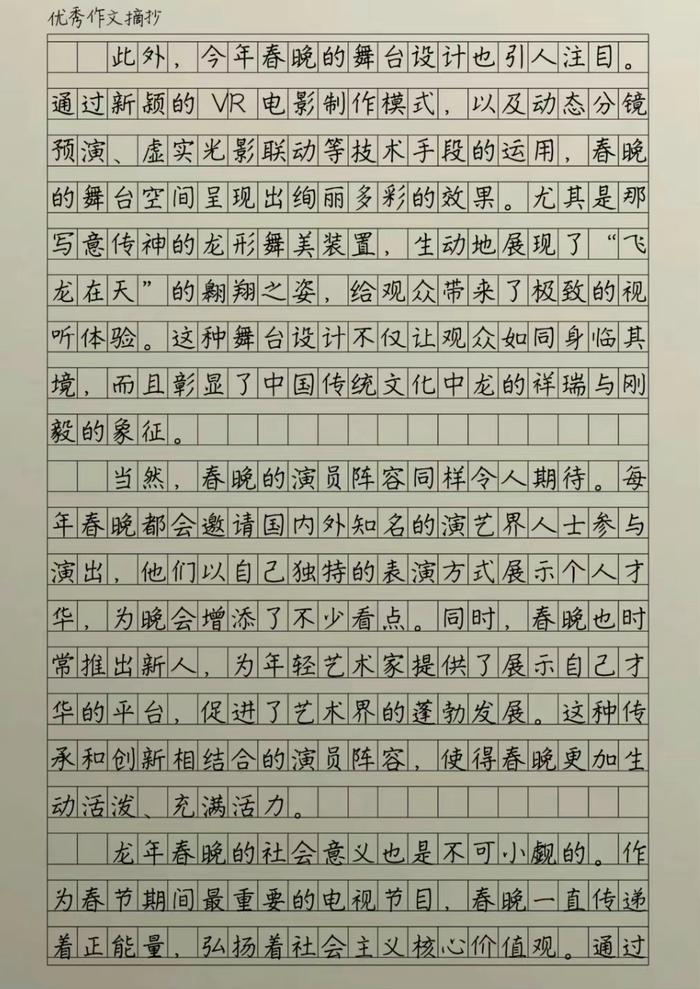 优秀作文摘抄
此外，今年春晚的舞台设计也引人注目。
通过新颖的 VR 电影制作模式，以及动态分镜
预演、虚实光影联动等技术手段的运用，春晚
的舞台空间呈现出绚丽多彩的效果。尤其是那
写意传神的龙形舞美装置，生动地展现了“飞
龙在天”的翱翔之姿，给观众带来了极致的视
听体验。这种舞台设计不仅让观众如同身临其
境，而且彰显了中国传统文化中龙的祥瑞与刚
毅的象征。
当然，春晚的演员阵容同样令人期待。每
年春晚都会邀请国内外知名的演艺界人士参与
演出，他们以自己独特的表演方式展示个人才
华，为晚会增添了不少看点。同时，春晚也时
常推出新人，为年轻艺术家提供了展示自己才
华的平台，促进了艺术界的蓬勃发展。这种传
承和创新相结合的演员阵容，使得春晚更加生
动活泼、充满活力。
龙年春晚的社会意义也是不可小觑的。作
为春节期间最重要的电视节目，春晚一直传递
着正能量，弘扬着社会主义核心价值观。通过